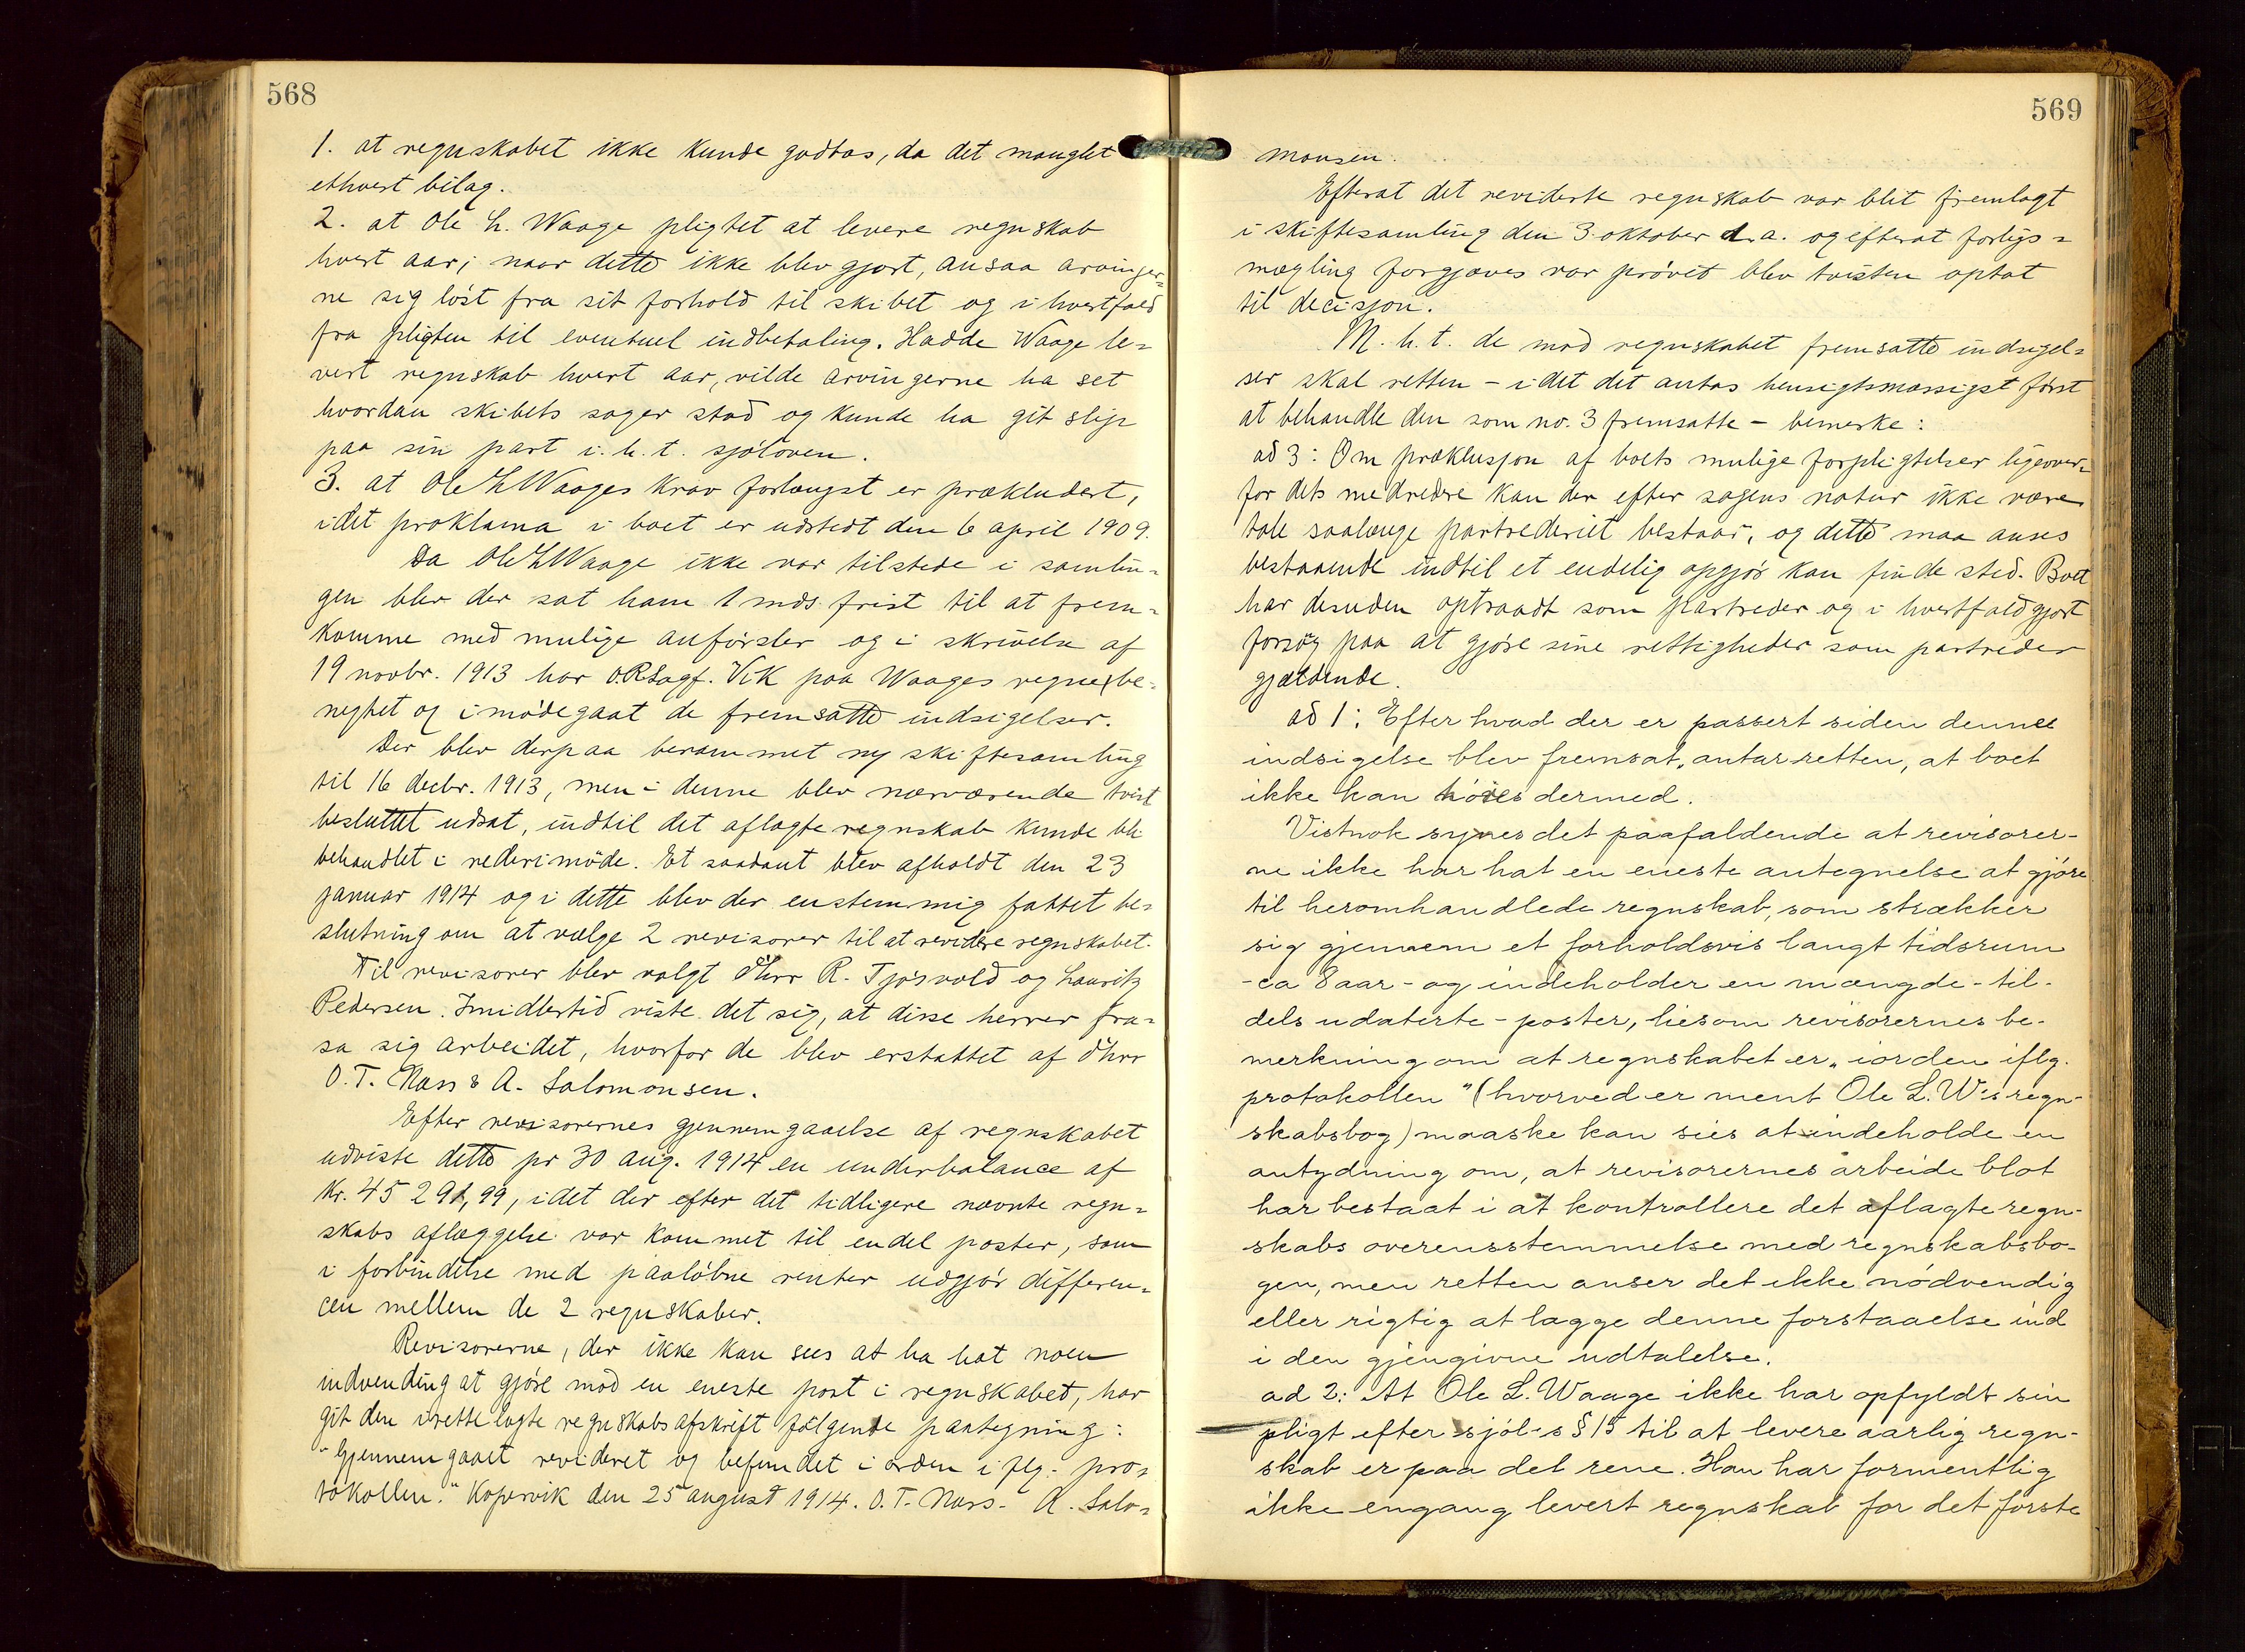 568
1. at regnskabet ikke kunde godtas, da det manglet
ethvert bilag.
2. at Ole L. Waage pligtet at levere regnskab
hvert aar; naar dette ikke blev gjort, ansaa arvinger=
ne sig løst fra sit forhold til skibet og i hvertfald
fra pligten til eventuel indbetaling. Hadde Waage le=
vert regnskab hvert aar, vilde arvingerne ha set
hvordan skibets sager stod og kunde ha git slip
paa sin part i. h. t. sjøloven.
3. at Ole L Waages krav forlængst er prækludert,
idet proklama i boet er utstedt den 6 april 1909.
Da Ole L Waage ikke var tilstede i samlin=
gen blev der sat ham 1 mds. frist til at frem=
komme med mulige anførsler og i skrivelse af
19 novbr. 1913 har O.R.Sagf. Vik paa Waages vegne be=
negtet og imødegaat de fremsatte indsigelser.
Der blev derpaa berammet ny skiftesamling
til 16 decbr. 1913, men i denne blev nærværende tvist
besluttet udsat, indtil det aflagte regnskab kunde bli
behandlet i rederimøde. Et saadant blev afholdt den 23
januar 1914 og i dette blev der enstemmig fattet be=
slutning om at vælge 2 revisorer til at revidere regnskabet.
Til revisorer blev valgt d'hrr R. Tjøsvold og Lauritz
Pedersen. Imidlertid viste det sig, at disse herrer fra=
sa sig arbeidet, hvorfor de blev erstattet af d'hrr
O. T. Næss & A. Salomonsen.
Efter revisorernes gjennemgaaelse af regnskabet
udviste dette pr 30 aug. 1914 en underbalance af
Kr. 45 291,99, idet der efter det tidligere nævnte regn=
skabs aflæggelse var kommet til endel poster, som
i forbindelse med paaløbne renter udgjør differen=
cen mellem de 2 regnskaber.
Revisorerne, der ikke kan sees at ha hat noen
indvending at gjøre mod en eneste post i regnskabet, har
git den irettelagte regnskabsafskrift følgende paategning:
"Gjennemgaaet revideret og befundet i orden iflg. pro=
tokollen." Kopervik den 25 august 1914. O. T. Næss. A. Salo=
569
monsen.
Efterat det reviderte regnskab var blit fremlagt
i skiftesamling den 3 oktober d. a. og efterat forligs=
mægling forgjæves var prøvet blev tvisten optat
til decisjon.
M. h. t. de mod regnskabet fremsatte indsigel=
ser skal retten - idet det antas hensigtsmæssigst først
at behandle den som no. 3 fremsatte - bemerke:
ad 3: Om præklusjon af boets mulige forpligtelser ligeover=
for dets medredere kan der efter sagens natur ikke være
tale saalænge partrederiet bestaar, og dette maa anses
bestaaende indtil et endelig opgjør kan finde sted. Boet
har desuden optraadt som partreder og i hvertfald gjort
forsøg paa at gjøre sine rettigheder som partreder
gjældende.
ad 1: Efter hvad der er passert siden denne
indsigelse blev fremsat, antar retten, at boet
ikke kan høres dermed.
Vistnok synes det paafaldende at revisorer-
ne ikke har hat en eneste antegnelse at gjøre
til heromhandlede regnskab, som strækker
sig gjennem et forholdsvis langt tidsrum
- ca 8 aar - og indeholder en mængde - til-
dels udaterte - poster, liesom revisorernes be-
merkning om at regnskabet er "iorden iflg.
protokollen" (hvorved er ment Ole L. W's regn-
skabsbog) maaske kan sies at indeholde en
antydning om, at revisorernes arbeide blot
har bestaat i at kontrollere det aflagte regn-
skabs overensstemmelse med regnskabsbo-
gen, men retten anser det ikke nødvendig
eller rigtig at lægge denne forstaaelse ind
i den gjengivne udtalelse.
ad 2: At Ole L. Waage ikke har opfyldt sin
pligt efter sjøl-s § 15 til at levere aarlig regn-
skab er paa det rene. Han har formentlig
ikke engang levert regnskab for det første